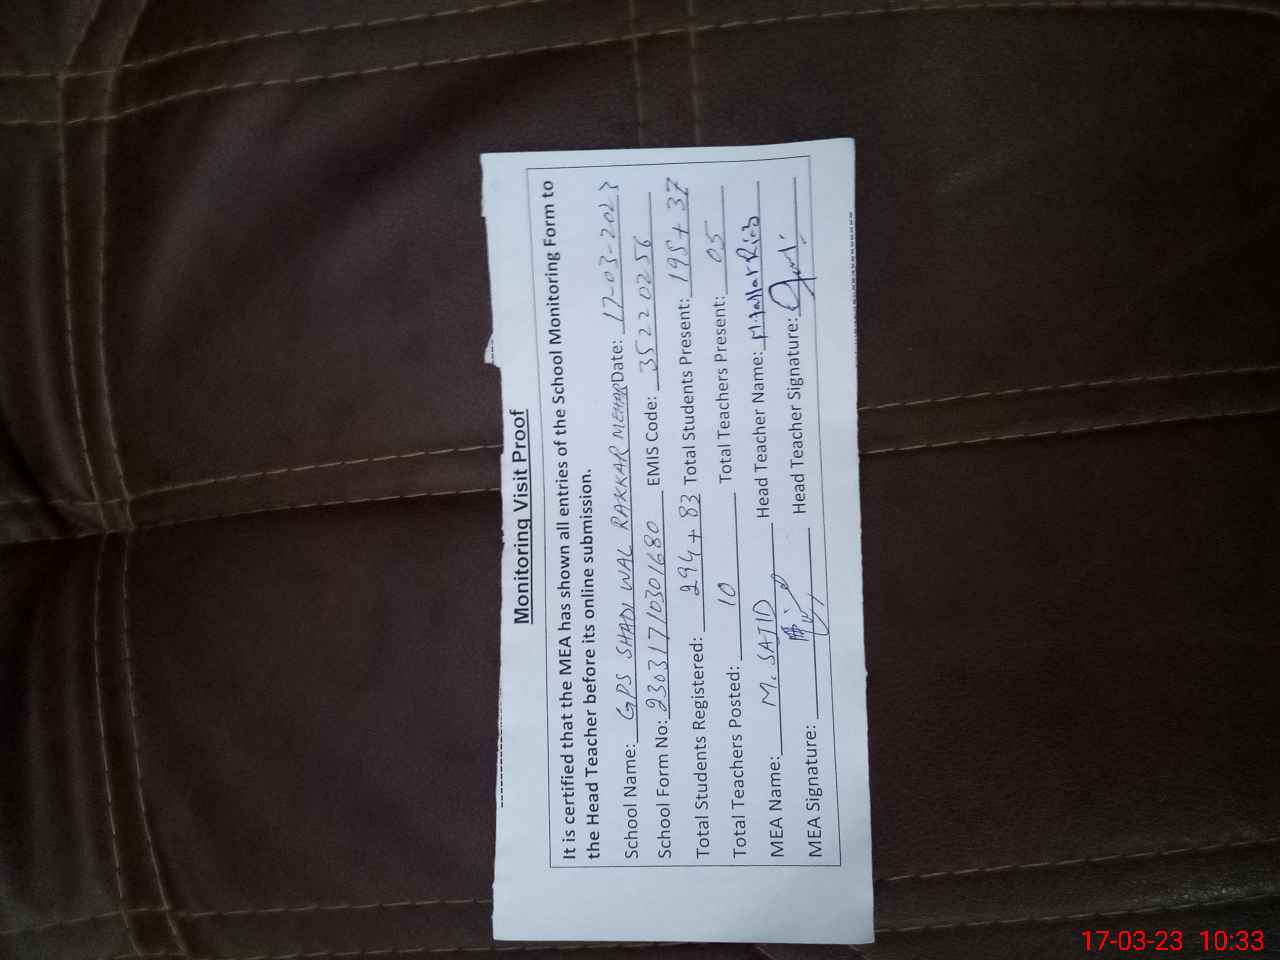 Monitoring Visit Proof
It is certified that the MEA has shown all entries of the School Monitoring Form to
the Head Teacher before its online submission.
School Name: GPS SHADI WAL RAKKAR MEHAR Date: 17-03-2023
School Form No: 2303171030 1680 EMIS Code: 35220256
Total Students Registered: 294 + 83 Total Students Present: 195 + 37
Total Teachers Posted: 10 Total Teachers Present: 05
MEA Name: M. SAJID Head Teacher Name:
MEA Signature: Head Teacher Signature:
17-03-23 10:33